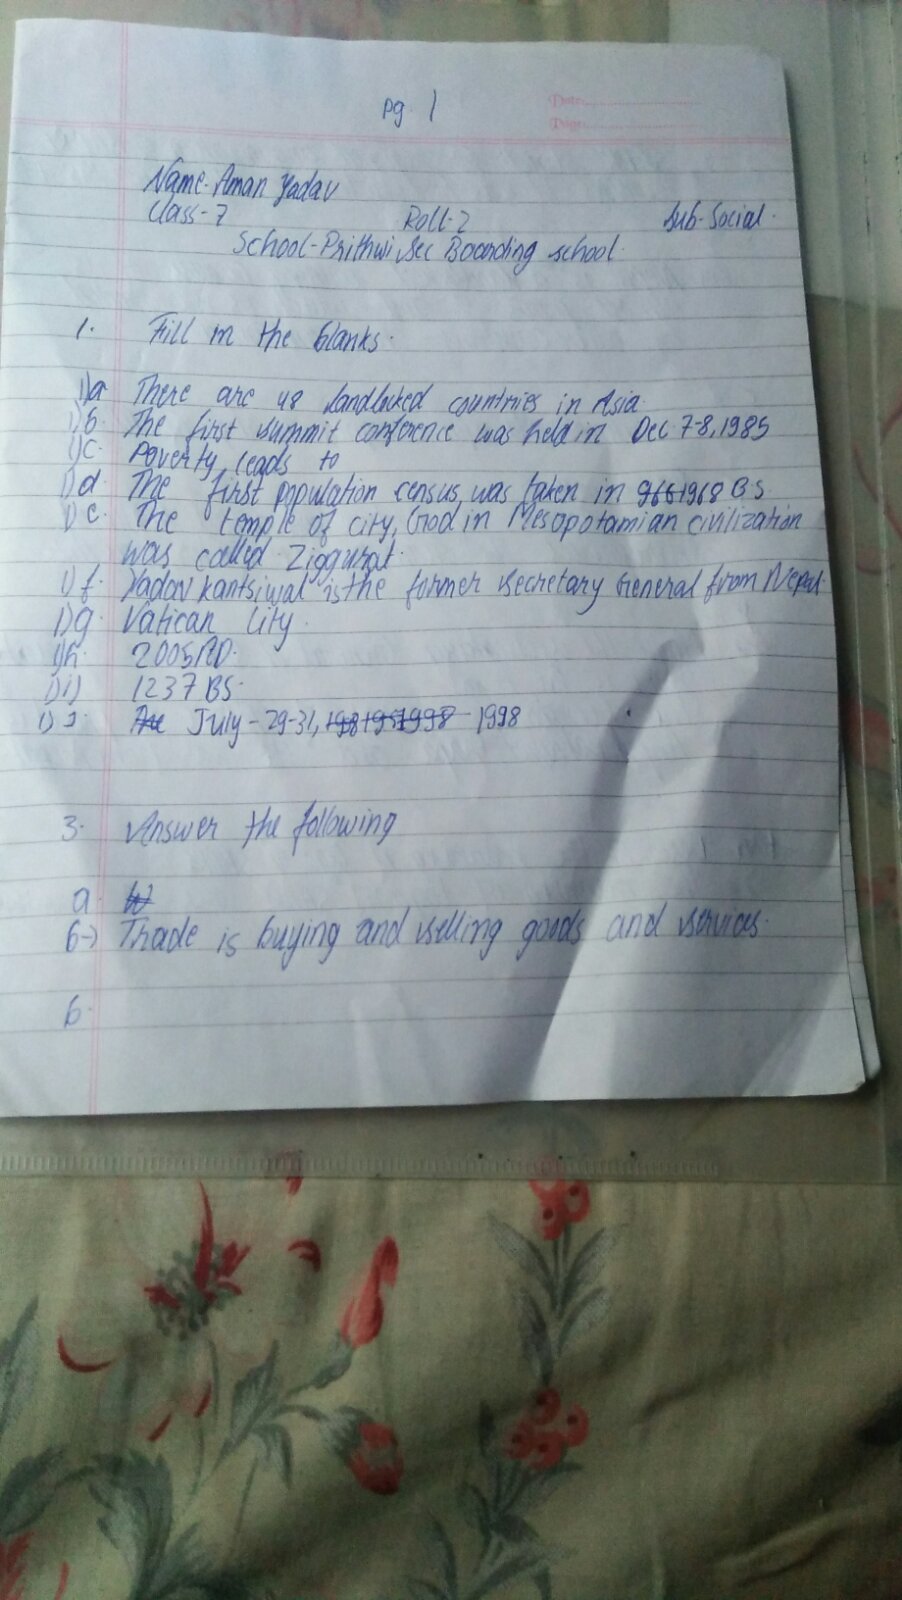 pg. 1
Date:
Page:
Name- Aman Yadav
Class-7 Roll-2 Sub-Social.
School-Prithwi Sec Boarding school.
1. Fill in the blanks.
1)a There are 48 landlocked countries in Asia.
1)b. The first summit conference was held in Dec 7-8, 1985
1)c. Poverty leads to
1)d The first population census was taken in 1968 BS.
1)e. The temple of city, God in Mesopotamian civilization
was called Ziggurat.
1)f. Yadav kantsiwal is the former secretary General from Nepal.
1)g. Vatican City.
1)h. 2005 AD.
1)i) 1237 BS.
1)J. July-29-31, 1998
3. Answer the following
a.
b-) Trade is buying and selling goods and services.
b.